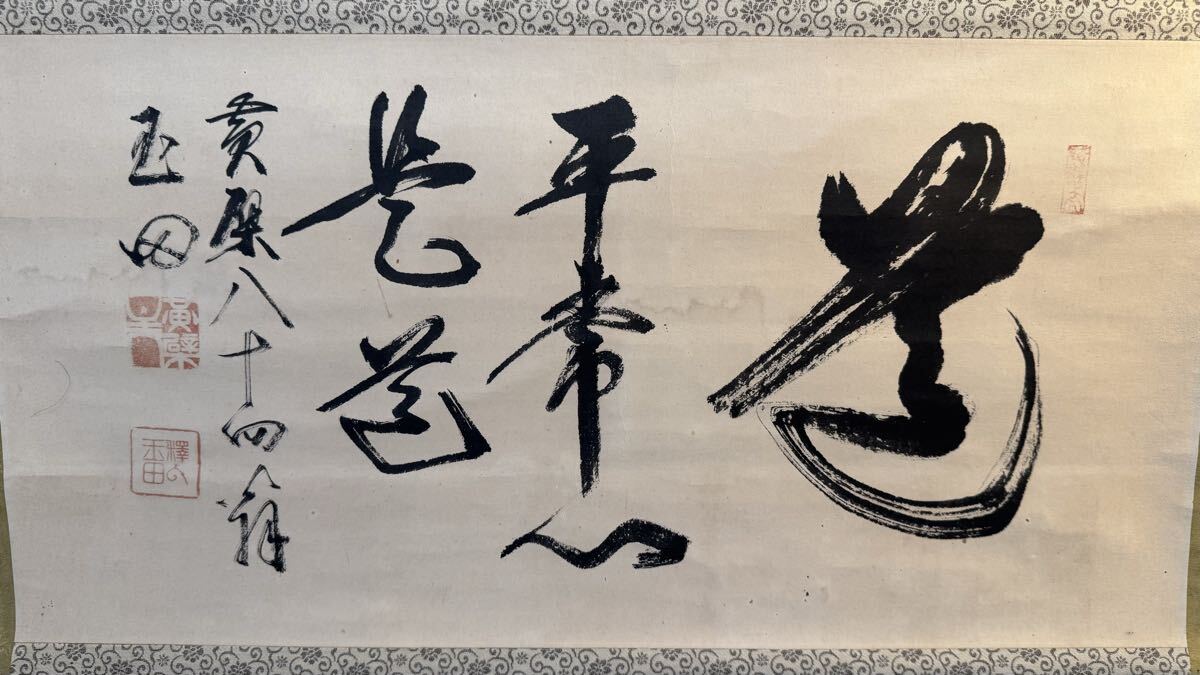 道
平常心
是道
黄檗八十四翁
玉田